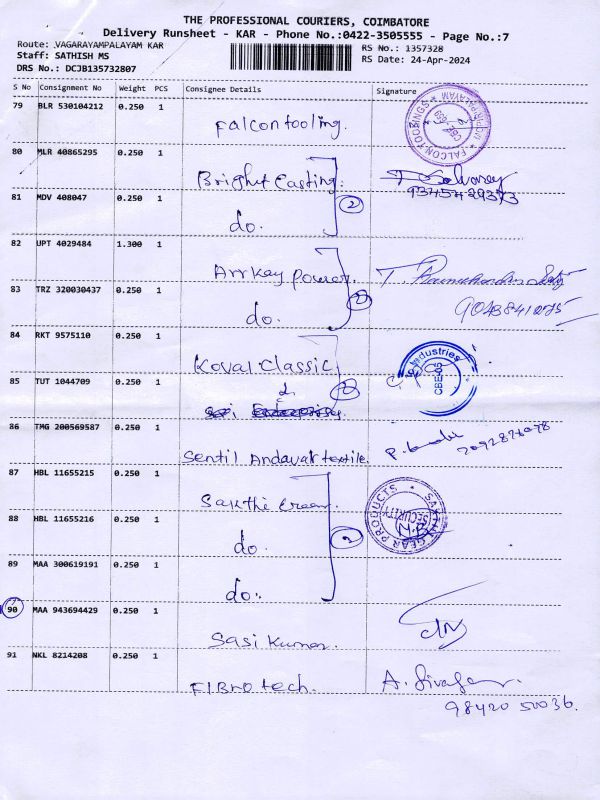 THE PROFESSIONAL COURIERS, COIMBATORE
Delivery Runsheet - KAR - Phone No.:0422-3505555 - Page No.:7
Route: VAGARAYAMPALAYAM KAR
RS No.: 1357328
Staff: SATHISH MS
RS Date: 24-Apr-2024
DRS No.: DCJB135732807
S No Consignment No Weight PCS Consignee Details Signature
79 BLR 530104212 0.250 1
Falcontooling.
FALCON TOOLINGS
80 MLR 40865295 0.250 1
Bright Casting.
2
81 MDV 408047 0.250 1
do.
82 UPT 4029484 1.300 1
Arrkay power.
83 TRZ 320030437 0.250 1
do.
84 RKT 9575110 0.250 1
Koval Classic
Industries
85 TUT 1044709 0.250 1
86 TMG 200569587 0.250 1
Sentil Andavar textile.
87 HBL 11655215 0.250 1
Sakthi
GEAR PRODUCTS
SECURITY
88 HBL 11655216 0.250 1
do.
89 MAA 300619191 0.250 1
do.
90 MAA 943694429 0.250 1
Sasi Kumar.
91 NKL 8214208 0.250 1
FIBro tech.
98420 50036.